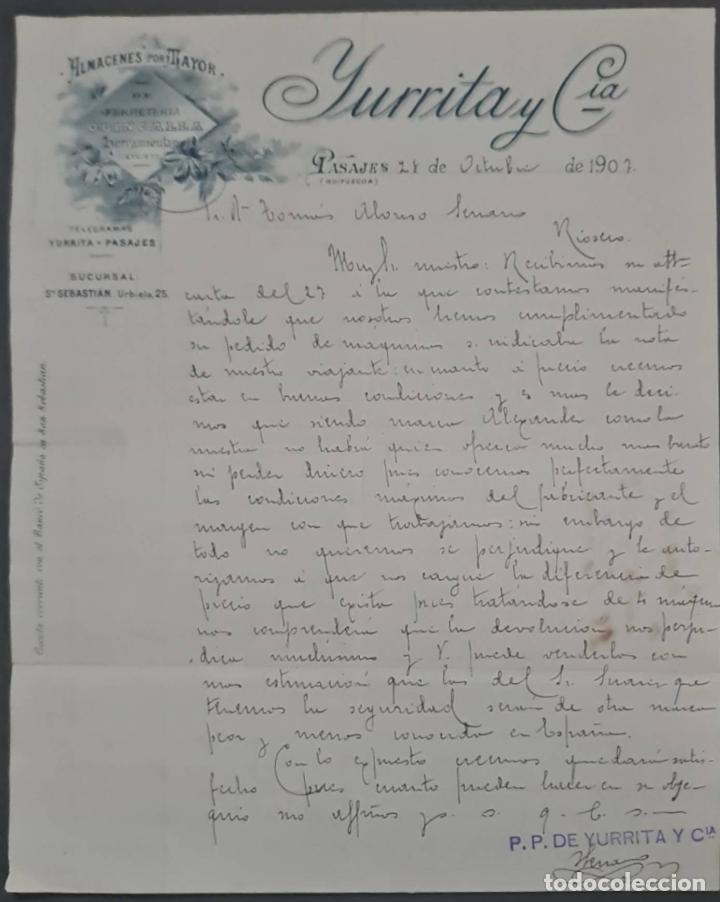 ALMACENES POR MAYOR
DE
FERRETERIA
QUINCALLA
Herramientas
Yurrita y Cia
PASAJES 28 de Octubre de 1907.
(GUIPUZCOA)
Sr. Dn Tomás Alonso Serrano
Rioseco.
TELEGRAMAS
YURRITA - PASAJES
SUCURSAL:
Sn SEBASTIÁN, Urbieta 25.
Cuenta corriente con el Banco De España en San Sebastian.
Muy Sr. nuestro: Recibimos su att
carta del 27 á la que contestamos manifes-
tándole que nosotros hemos cumplimentado
su pedido de máquinas s. indicaba la nota
de nuestro viajante: en cuanto á precio creemos
estar en buenas condiciones y es mas le deci-
mos que siendo marca Alexander como la
nuestra no habrá quien ofrezca mucho mas barato
sin perder dinero pues conocemos perfectamente
las condiciones máximas del fabricante y el
margen con que trabajamos: sin embargo de
todo no queremos se perjudique y le auto-
rizamos á que nos cargue la diferencia de
precio que exista pues tratándose de 4 máquin
nos comprenderá que la devolución nos perju-
dica muchísimo y V. puede venderlas con
mas estimación que las del Sr. Suarez que
tenemos la seguridad serán de otra marca
peor y menos conocida en España.
Con lo expuesto creemos quedará satis-
fecho pues cuanto pueden hacer en su obse-
quio sus affmos y s. s. q. b. s.
P.P. DE YURRITA Y CIA